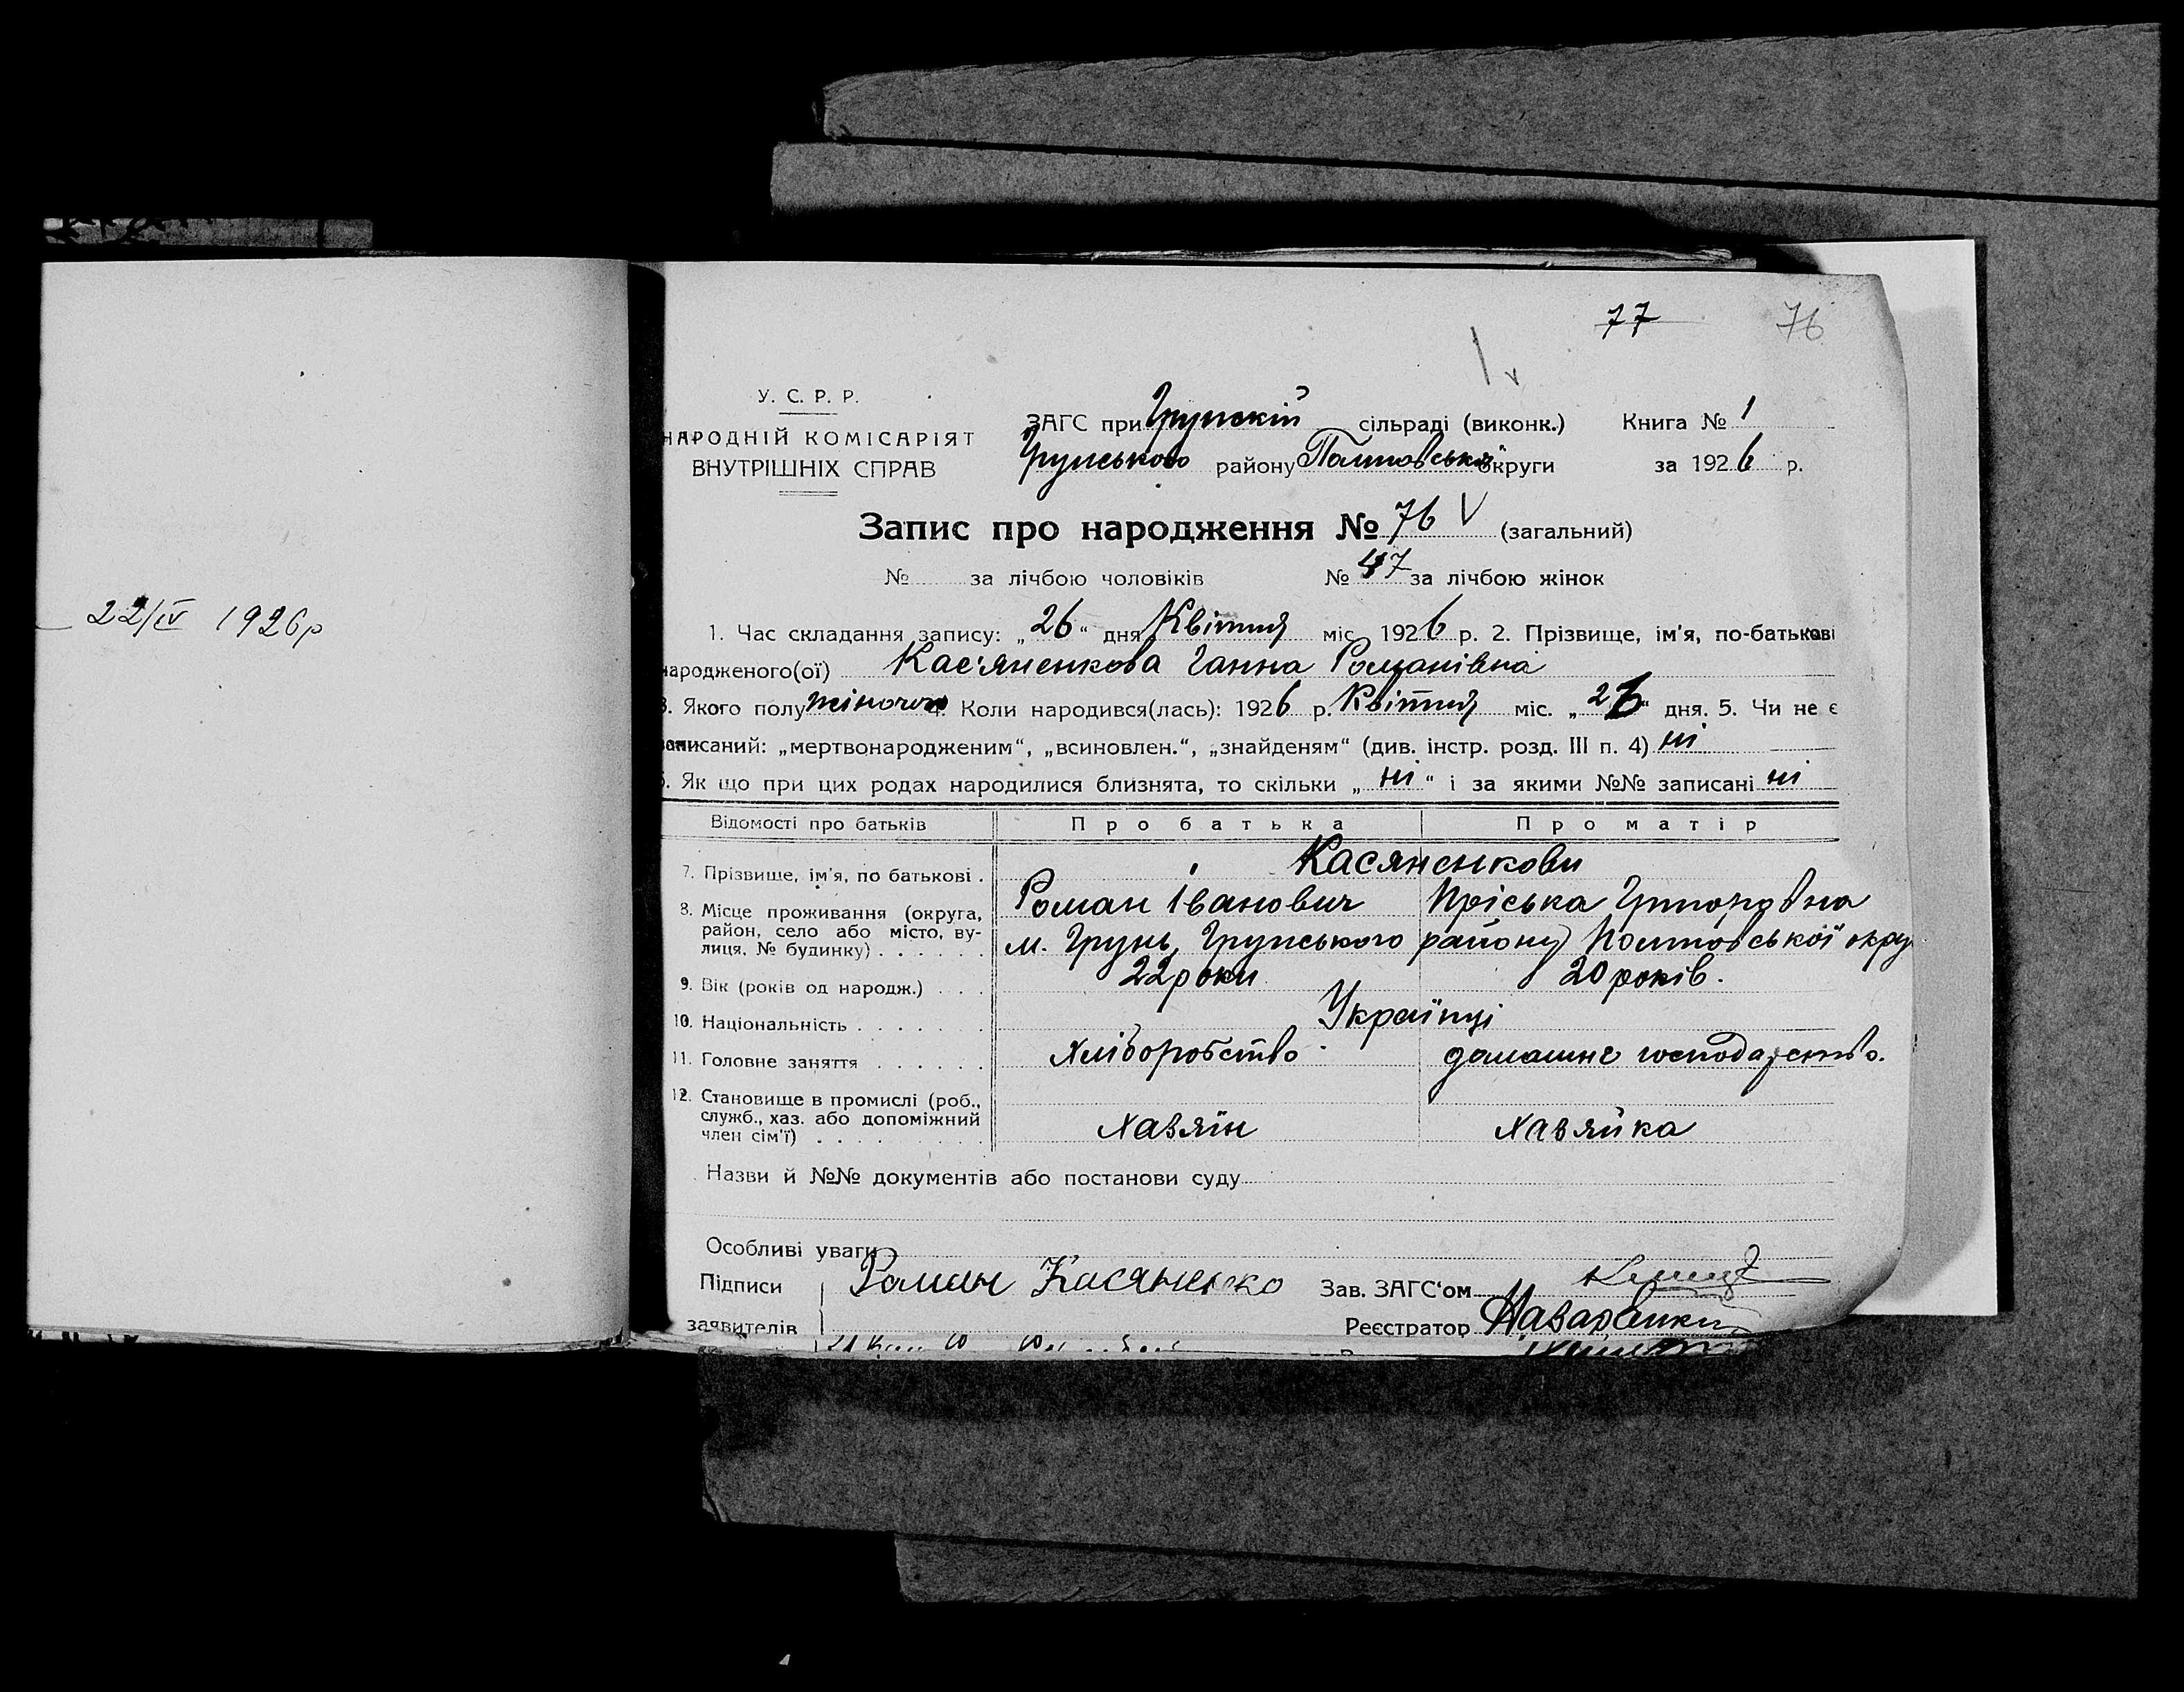 22/IV 1926р
77
76
У. С. Р. Р.
НАРОДНІЙ КОМІСАРІЯТ
ВНУТРІШНІХ СПРАВ
ЗАГС при Грунскій сільраді (виконк.) Книга № 1
Грунського району Полтавської округи за 1926 р.
Запис про народження № 76 V (загальний)
№ за лічбою чоловіків № 47 за лічбою жінок
1. Час складання запису: „26“ дня Квітня міс. 1926 р. 2. Прізвище, ім'я, по-батькові
народженого(ої) Кас'яненкова Ганна Романівна
3. Якого полу жіночого 4. Коли народився(лась): 1926 р. Квітня міс. „ “ дня. 5. Чи не є
записаний: „мертвонародженим“, „всиновлен.“, „знайденям“ (див. інстр. розд. III п. 4) ні
6. Як що при цих родах народилися близнята, то скільки „ні“ і за якими №№ записані ні
Відомості про батьків Про батька Про матір
7. Прізвище, ім'я, по батькові . Касяненкови
Роман Іванович Пріська
8. Місце проживання (округа, район, село або місто, вулиця, № будинку) . . . . . . м. Грунь, Грунського району Полтавської окру
9. Вік (років од народж.) . . . 22 роки 20 років.
10. Національність . . . . . . Українці
11. Головне заняття . . . . . . Хліборобство домашнє господарство.
12. Становище в промислі (роб., служб., хаз. або допоміжний член сім'ї) . . . . Хазяїн Хазяйка
Назви й №№ документів або постанови суду
Особливі уваги
Підписи Роман Касяненко Зав. ЗАГС'ом
заявителів Реєстратор